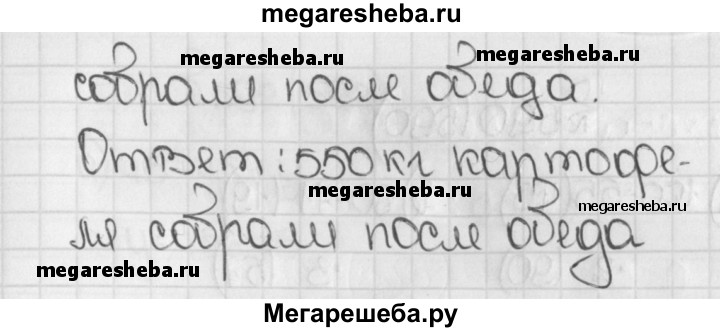 megaresheba.ru
megaresheba.ru megaresheba.ru
собрали после обеда.
Ответ: 550 кг картофе-
megaresheba.ru megaresheba.ru
ля собрали после обеда
megaresheba.ru
Мегарешеба.ру